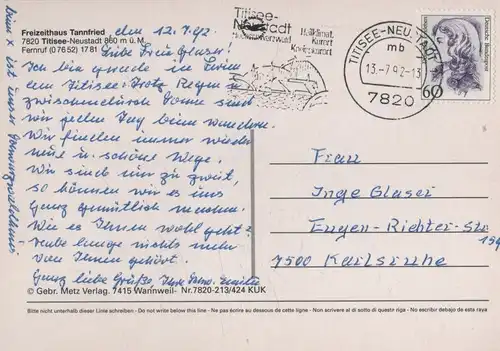 Freizeithaus Tannfried
7820 Titisee-Neustadt 860 m ü. M.
Fernruf (0 76 52) 17 81
den 12.7.92
Liebe Frau Glaser!
Ich bin gerade in
dem Titisee. Trotz Regen u.
zwischendurch Sonne sind
wir jeden Tag beim Wandern.
Wir finden immer wieder
neue u. schöne Wege.
Wir sind nur zu zweit,
so können wir es uns
ganz gemütlich machen.
Wie es Ihnen wohl geht?
lange nichts mehr
von Ihnen gehört.
Ganz liebe Grüße, Ihre Emilie
© Gebr. Metz Verlag. 7415 Wannweil Nr.7820-213/424 KUK
Titisee-
Neustadt
Hochschwarzwald
Heilklimat.
Kurort
Kneippkurort
TITISEE-NEUSTADT
mb
13.-7.92-13
7820
Deutsche Bundespost
60
Frau
Inge Glaser
Eugen-Richter-Str
159
7500 Karlsruhe
Bitte nicht unterhalb dieser Linie schreiben - Do not write below this line - Ne pas écrire au dessous de cette ligne - Non scrivere al di sotto di questa riga - No escribir debajo de esta raya